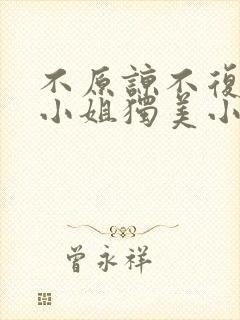 不原諒不復
小姐獨美小
曾永祥